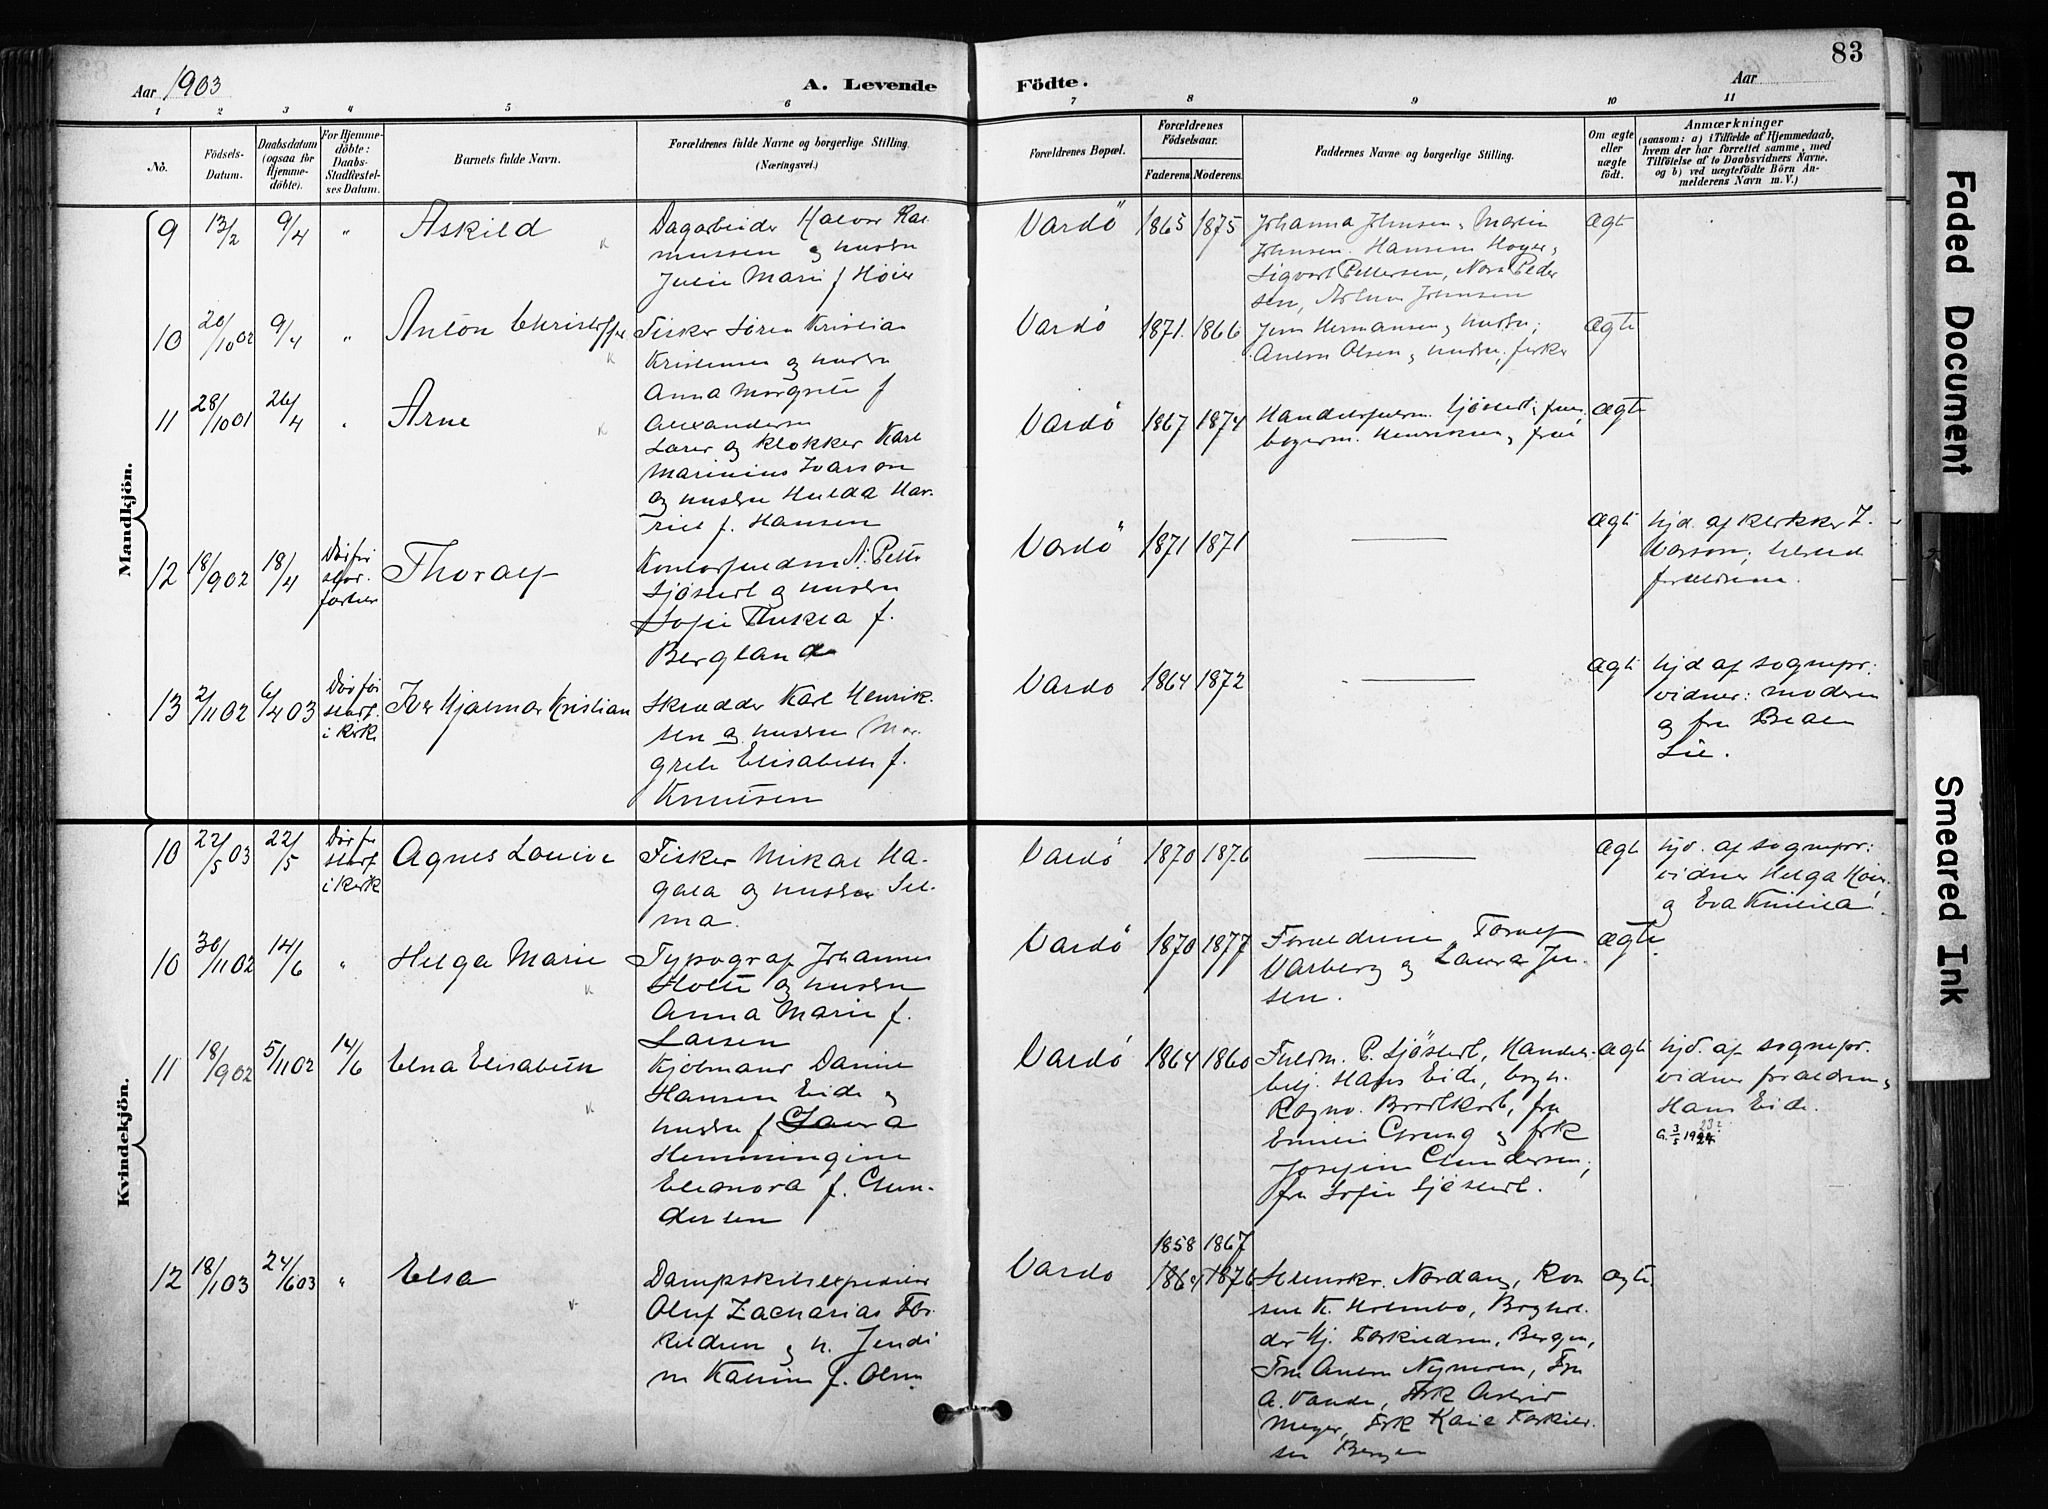 83
Aar 1903
A. Levende
Födte.
Aar
1 2 3 4 5 6 7 8 9 10 11
No.
Födsels-
Datum.
Daabsdatum
(ogsaa for
Hjemme-
döbte).
For Hjemme-
döbte:
Daabs-
Stadfæstel-
ses Datum.
Barnets fulde Navn.
Forældrenes fulde Navne og borgerlige Stilling.
(Næringsvei.)
Forældrenes Bopæl.
Forældrenes
Födselsaar.
Faderens. Moderens.
Faddernes Navne og borgerlige Stilling.
Om ægte
eller
uægte
födt.
Anmærkninger
(saasom: a) i Tilfælde af Hjemmedaab,
hvem der har forrettet samme, med
Tilföielse af to Daabsvidners Navne.
og b) ved uægtefödte Börn An-
melderens Navn m. V.)
Mandkjön.
9 13/2 9/4 " Askild
Dagarbeider Halvor Ras
mussen og hustru
Julie Marie f Høier
Vardö 1865 1875
Johanna Johnsen, Martin
Johnsen, Hansine Hoyer,
Sigvart Pettersen, Nora Peder
sen, Arthur Johnsen
ægte
10 20/10 02 9/4 " Anton Christoffer
Fisker Søren Kristian
Kristensen og hustru
Anna Margrete f
Alexandersen
Vardö 1871. 1866
Jens Hermansen og hustru;
Anton Olsen og hustru, fisker
ægte
11 28/10 01 26/4 " Arne
Lærer og klokker Karl
Marinius Ivarson
og hustru Hulda Har-
riet f. Hansen
Vardö 1867 1874
Handelsfuldm. Sjöstedt, frue
bogerm. Henriksen, frue
ægte
12 18/9 02 18/4 Thoralf
Kontorfuldm N. Petter
Sjöstedt og hustru
Sofie Thukea f.
Bergland
Vardö 1871 1871
ægte
hjd. af klokker I-
varson, tilsted
forældrene.
13 2/11 02 6/4 03 i kirk Iver Hjalmar Kristian
Skrædder Karl Henrik-
sen og hustru Mar-
grete Elisabeth f.
Knutsen
Vardö 1864 1872
ægte
hjd af sognepr:
vidner: moderen
og fru Beaen
Lie.
Kvindekjön.
10 22/5 03 22/5 i kirk Agnes Louise
Fisker Mikal Ha-
gala og hustru Sel-
ma.
Vardö 1870 1876
ægte
hjd. af sognepr:
vidner Helga Høier
og Eva Knivilä.
10 30/11 02 14/6 " Helga Marie
Typograf Johannes
Holte og hustru
Anna Marie f.
Larsen
Vardö 1870 1877
Forældrene, Toralf
Varberg og Laura Jen-
sen.
ægte.
11 18/9 02 5/11 02 14/6 Elna Elisabeth
Kjöbmand Daniel
Hansen Eide og
hustru f Laura
Hemmingine
Eleanora f. Gun-
dersen
Vardö 1864 1860
Fuldm. P. Sjöstedt, Handels-
betj. Hans Eide, bogh.
Ragnv. Brodtkorb, fru
Emilie Grung og frk
Josefine Gundersen,
fru Sofie Sjöstedt.
ægte
hjd. af sognepr.
vidner forældrene,
Hans Eide.
G. 3/5 1924.
12 18/1 03 24/6 03 " Elsa
Dampskibsexpeditör
Oluf Zacharias Tor-
kildsen og h. Jendi
ne Katrine f. Olsen
Vardö 1858 1867
1864 1876
Stenskr. Nordang, Kon
sul K. Holmbo, Boghol-
der Hj. Torkildsen, Bergen,
Fru Anton Nymoen, Fru
A. Vande, Frk Astrid
Meyer, Frk Kaia Torkild-
sen Bergen
ægte
Faded Document
Smeared Ink